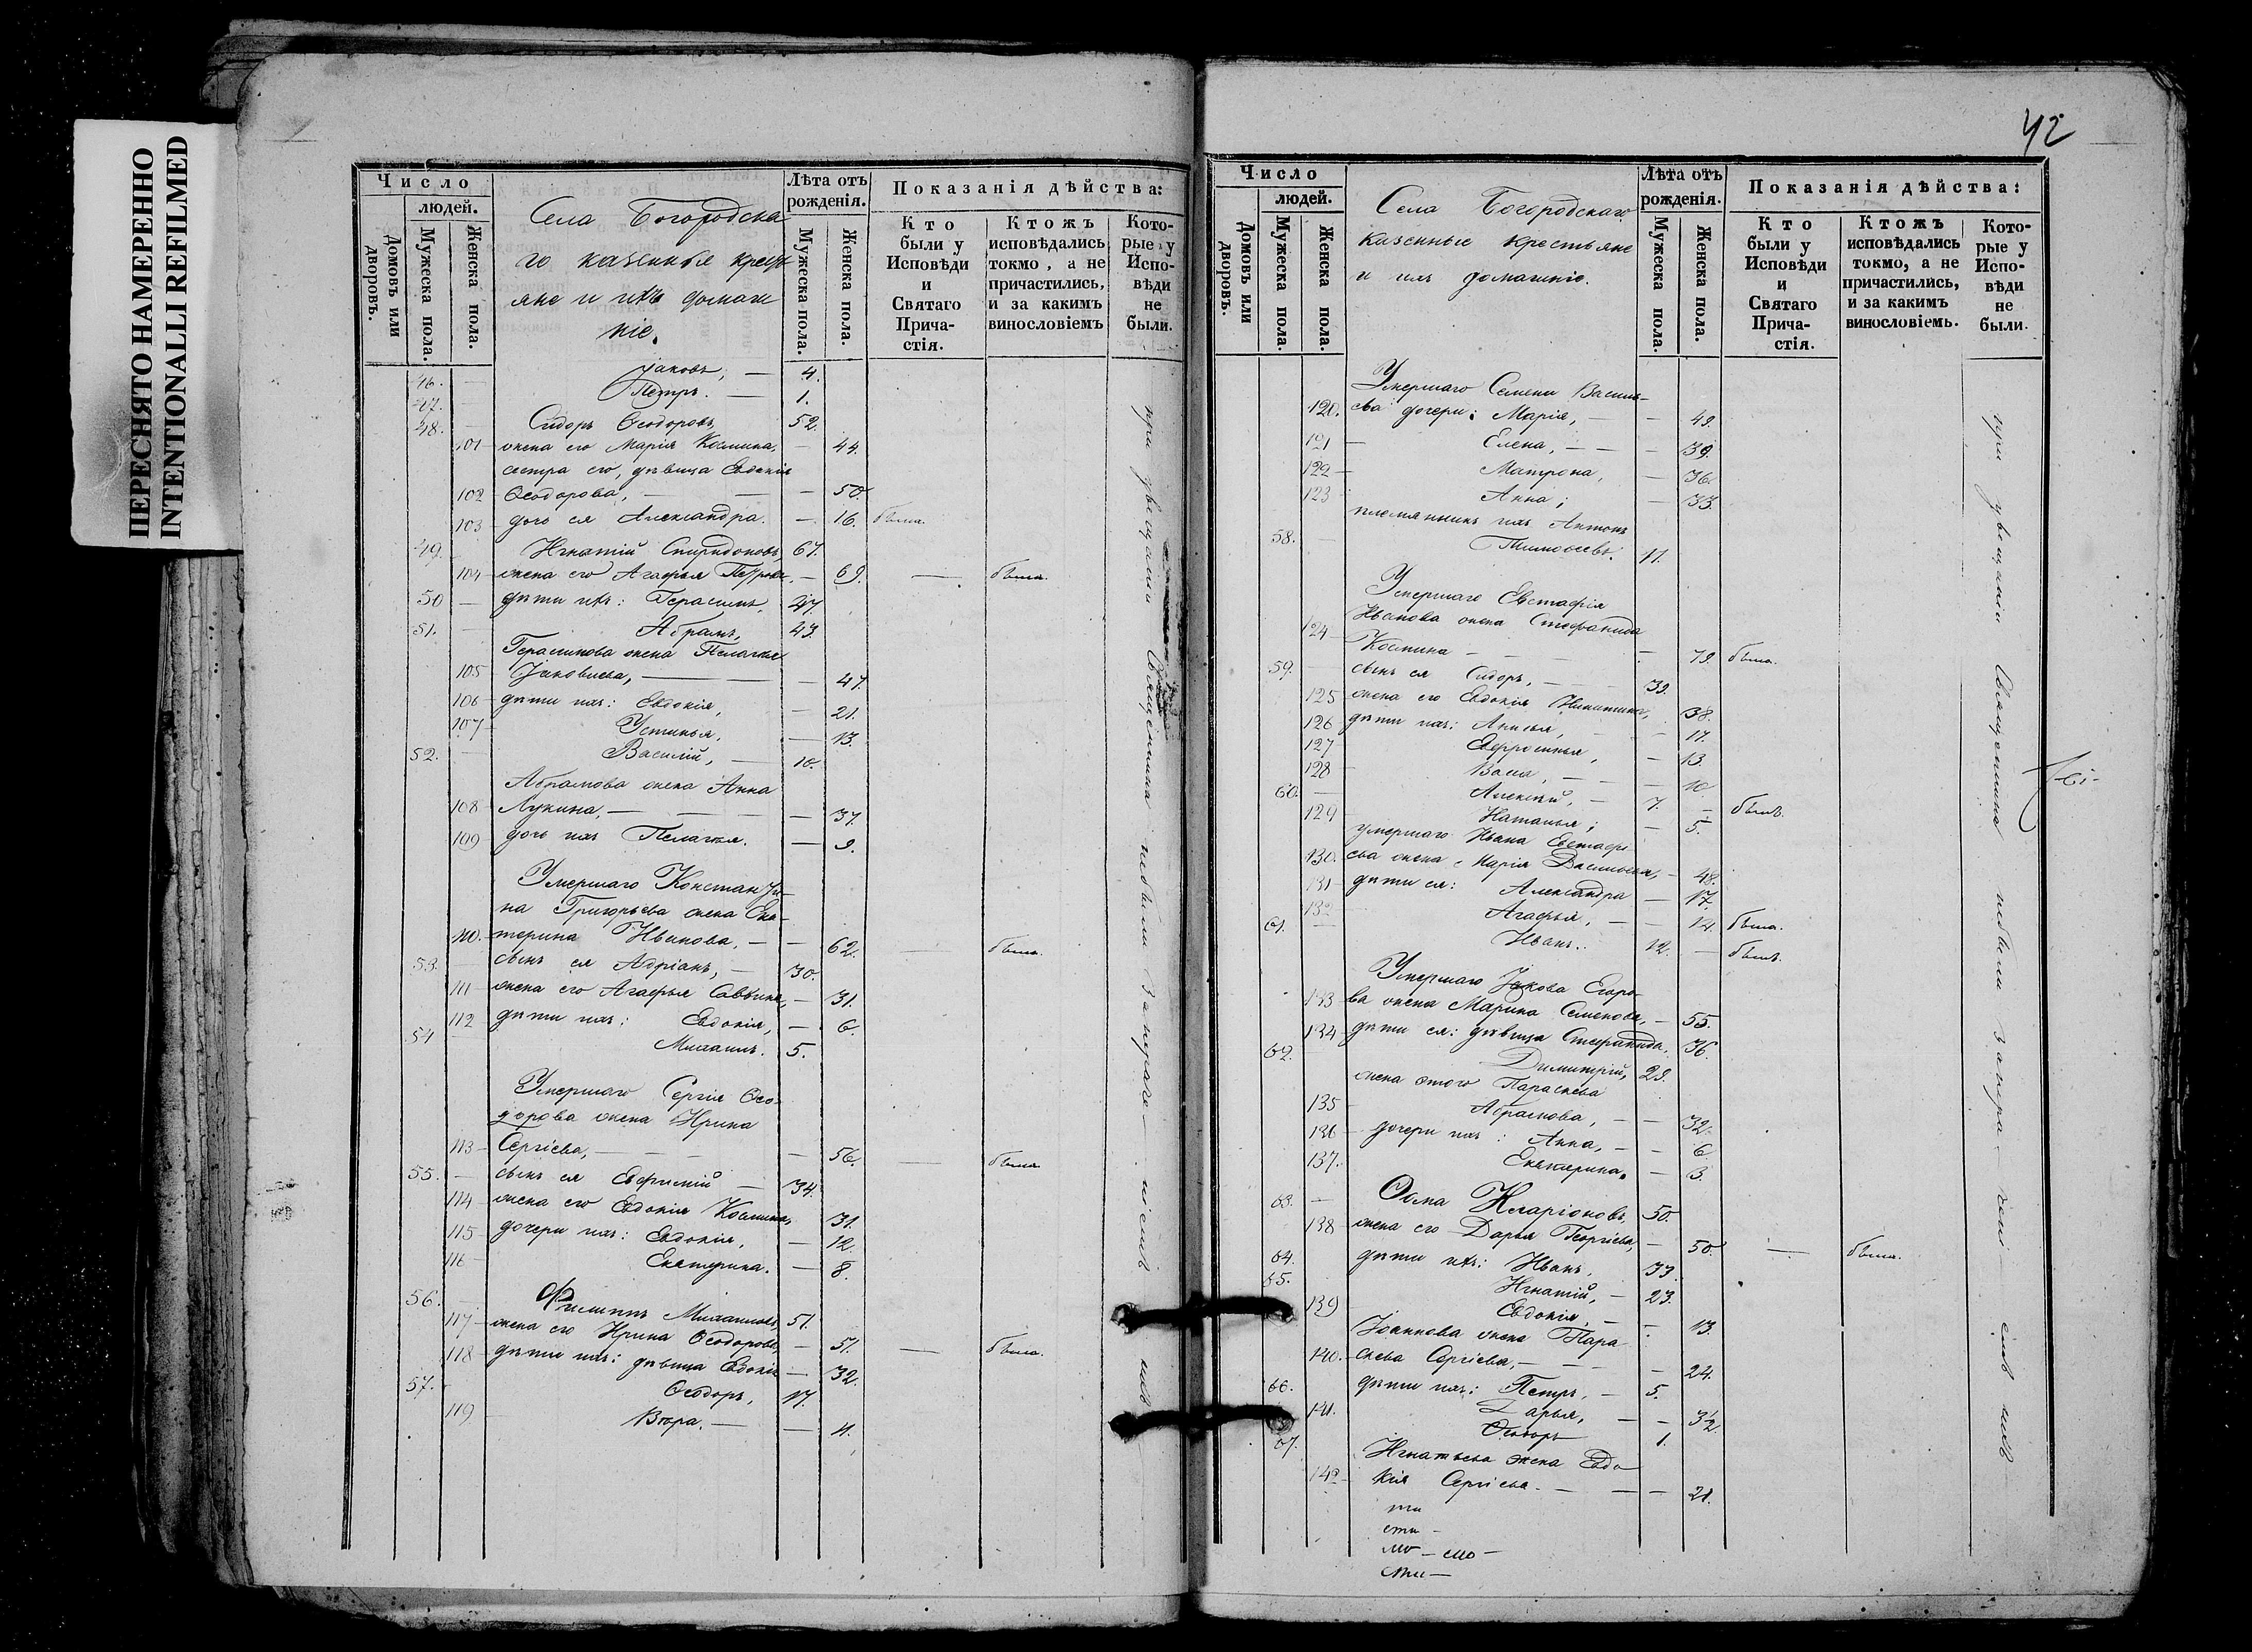 ПЕРЕСНЯТО НАМЕРЕННО
INTENTIONALLI REFILMED
Число
людей.
Домовъ или дворовъ.
Мужеска пола.
Женска пола.
Села Богородска
го казенные кресть
яне и ихъ домаш
ніе.
Лѣта отъ рожденія.
Мужеска пола.
Женска пола.
Показанія дѣйства:
Кто были у Исповѣди и Святаго Прича-стія.
Ктожъ исповѣдались токмо, а не причастились, и за какимъ винословіемъ
Кото-рые у Испо-вѣди не были.
46. — Іаковъ, — 4.
47. — Петръ. — 1.
48. — Сидоръ Ѳеодоровъ, 52.
101 — жена его Марія Космина, — 44.
сестра его, дѣвица Евдокія
102 — Ѳеодорова, — — — 50.
103 — дочь ея Александра. — 16. была.
49. — Игнатій Спиридоновъ, 67.
104 — жена его Агафья Петрова. — 69. — была.
50 — дѣти ихъ: Герасимъ, 47.
51. — Абрамъ, 43.
Герасимова жена Пелагея
105 — Іаковлева, — — — 47.
106 — дѣти ихъ: Евдокія, — 21.
107 — Устинья, — 13.
52. — Василій, — 10.
Абрамова жена Анна
108 — Лукина, — — — 37.
109 — дочь ихъ Пелагея. — 9.
Умершаго Константи-
на Григорьева жена Ека-
110. — терина Иванова. — — 62. — была.
53. — сынъ ея Адріанъ, — 30.
111 — жена его Агафья Саввина, — 31.
112 — дѣти ихъ: Евдокія, — 6.
54 — Михаилъ. 5.
Умершаго Сергія Ѳео-
дорова жена Ирина
113 — Сергіева, — — — 56. — была
55. — сынъ ея Евфимій — 34.
114 — жена его Евдокія Космина, 31.
115 — дочери ихъ: Евдокія, — 12.
116 — Екатерина. — 8.
56. — Филиппъ Михаиловъ, 51.
117 — жена его Ирина Ѳеодорова, — 51. — была.
118 — дѣти ихъ: дѣвица Евдокія — 32.
57. — Ѳеодоръ, 17.
119 — Вѣра. — — 11.
священника небыли
42
Число
людей.
Домовъ или дворовъ.
Мужеска пола.
Женска пола.
Села Богородскаго
казенные крестьяне
и ихъ домашніе.
Лѣта отъ рожденія.
Мужеска пола.
Женска пола.
Показанія дѣйства:
Кто были у Исповѣди и Святаго Прича-стія.
Ктожъ исповѣдались токмо, а не причастились, и за какимъ винословіемъ.
Кото-рые у Испо-вѣди не были.
Умершаго Семена Василь-
120. ева дочери: Марія, — — 49.
121 — Елена, — — — 39.
122 — Матрона, — 36.
123 — Анна; — 33.
племянникъ ихъ Антонъ
58. — Тимоѳеевъ. 11.
Умершаго Евстафія
Иванова жена Стефанида
124 — Космина — — — 79. была.
59. — сынъ ея Сидоръ, — 39.
125 — жена его Евдокія Никитина, 38.
126 — дѣти ихъ: Анисья, — — 17.
127 — Евфросинья, — 13.
128 — Васса, — — — 10.
60. — Алексій, — 7. — былъ.
129 Наталья; — 5.
умершаго Ивана Евстафь
130. ева жена, Марія Васильева, — 48.
131 — дѣти ея: Александра — 17.
132 — Агафья, — — 14. была.
61. — Иванъ. 12. — былъ.
Умершаго Іакова Егоро-
133 — ва жена Марина Семенова, — 55.
134 — дѣти ея: дѣвица Стефанида, 36.
62. — Димитрій, 29.
жена этого Параскева
135 — Абрамова, — — 32.
136 — дочери ихъ: Анна, — — 6.
137. Екатерина. — 3.
63. — Ѳома Иларіоновъ, 50.
138 — жена его Дарья Георгіева, — 50. — была.
64. дѣти ихъ: Иванъ, 33.
65. Игнатій, — 23.
139 — Евдокія, — — 13.
Іоаннова жена Пара
140. — скева Сергіева, — — — 24.
66. дѣти ихъ: Петръ, — 5.
141. Дарья, — — 3½
67. Ѳеодоръ 1.
Игнатьева жена Евдо
142 — кія Сергіева. — — — 21.
священника небыли